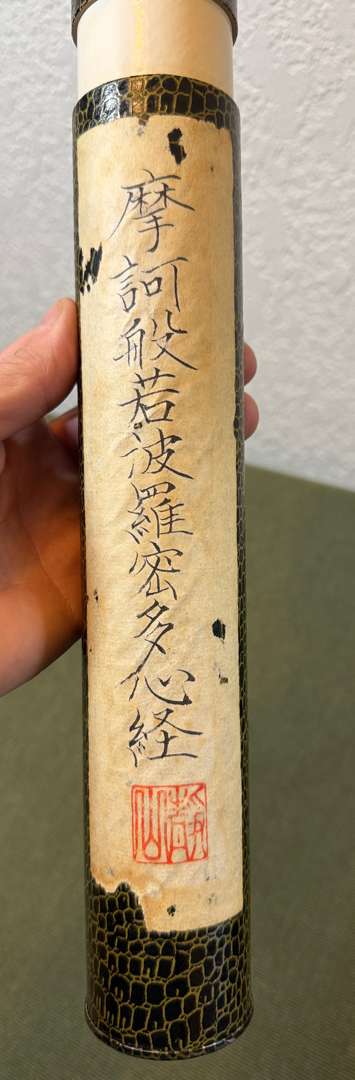 摩訶般若波羅密多心経